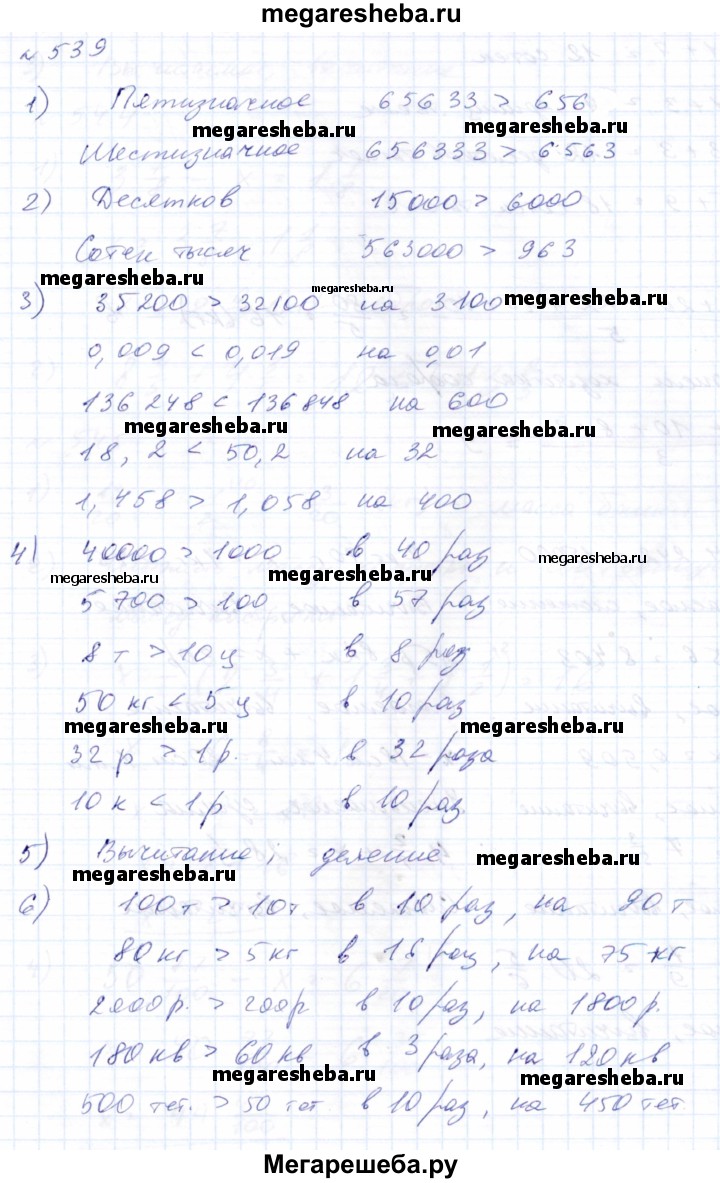 megaresheba.ru
№ 539
1) Пятизначное 65633 > 656
megaresheba.ru megaresheba.ru
Шестизначное 656333 > 6563
2) Десятков 15000 > 6000
Сотен тысяч 563000 > 963
megaresheba.ru megaresheba.ru megaresheba.ru
3) 35200 > 32100 на 3100
0,009 < 0,019 на 0,01
136 248 < 136 848 на 600
megaresheba.ru megaresheba.ru
18,2 < 50,2 на 32
1,458 > 1,058 на 400
4) 40000 > 1000 в 40 раз
megaresheba.ru megaresheba.ru megaresheba.ru
5700 > 100 в 57 раз
8 т > 10 ц в 8 раз
50 кг < 5 ц в 10 раз
megaresheba.ru megaresheba.ru
32 р > 1 р. в 32 раза
10 к < 1 р в 10 раз
5) Вычитание, деление
megaresheba.ru megaresheba.ru
6) 100 т > 10 т в 10 раз, на 90 т
80 кг > 5 кг в 16 раз, на 75 кг
2000 р. > 200 р в 10 раз, на 1800 р.
180 кв > 60 кв в 3 раза, на 120 кв
megaresheba.ru megaresheba.ru
500 тет. > 50 тет в 10 раз, на 450 тет
Мегарешеба.ру